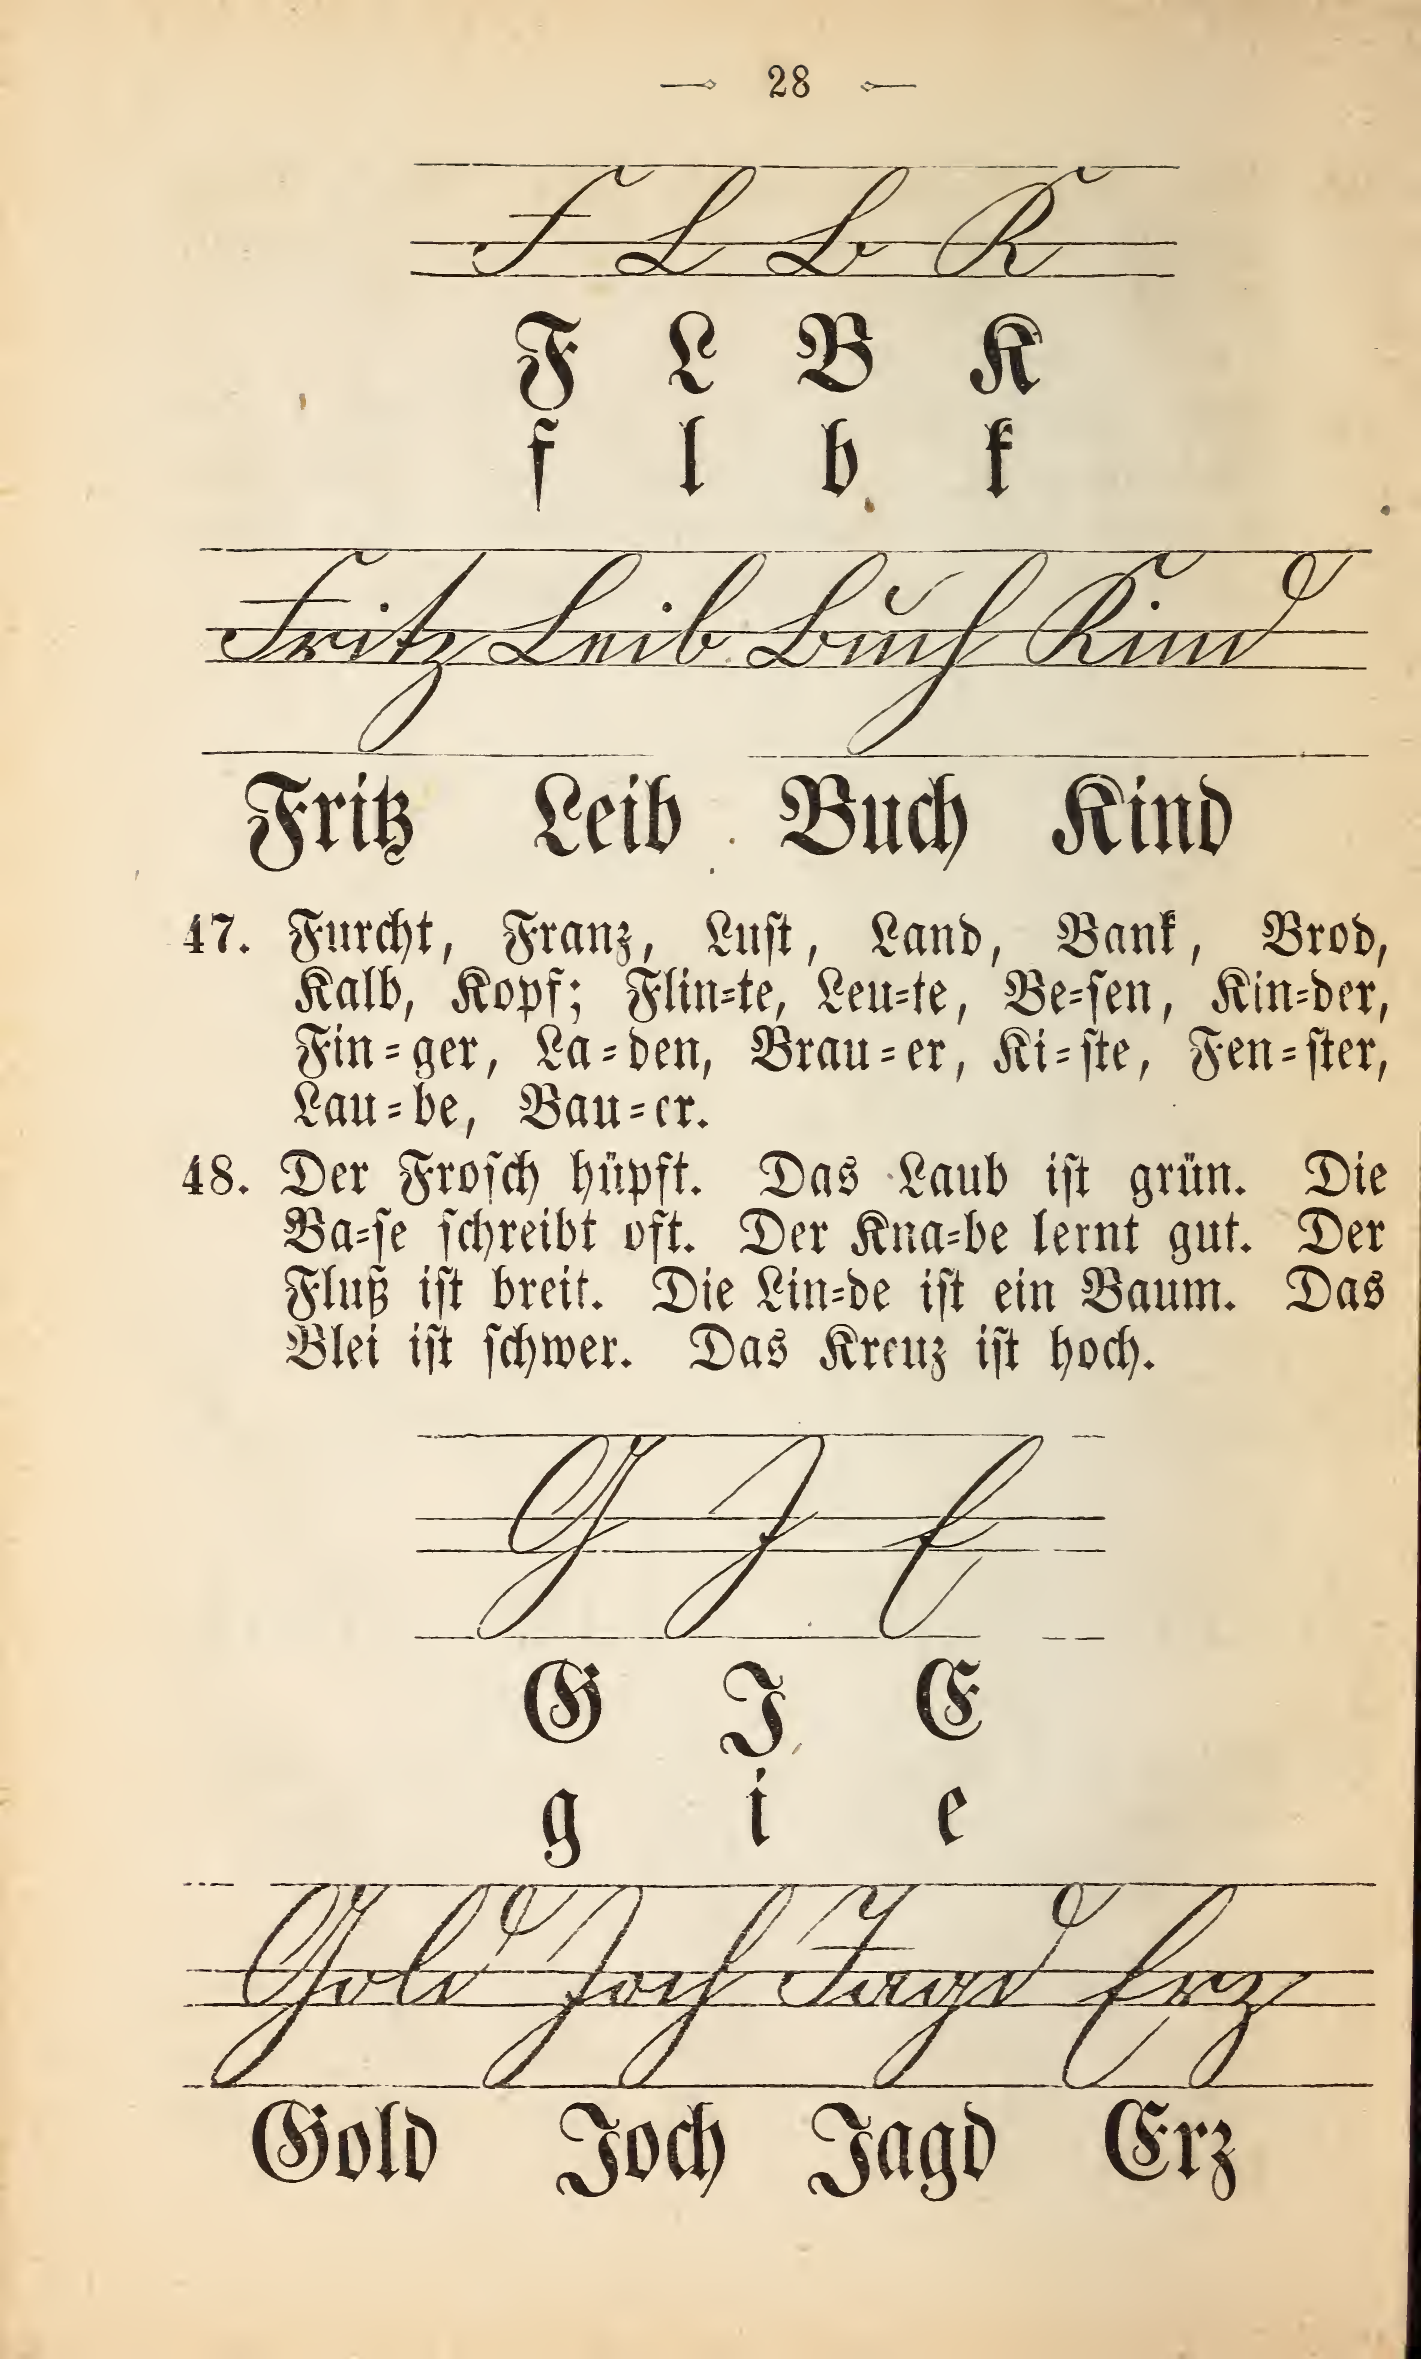 — 28 —
F L B K
F L B K
f l b k
Fritz Leib Buch Kind
Fritz Leib Buch Kind
47. Furcht, Franz, Luſt, Land, Bank, Brod,
Kalb, Kopf; Flin=te, Leu=te, Be=ſen, Kin=der,
Fin=ger, La=den, Brau=er, Ki=ſte, Fen=ſter,
Lau=be, Bau=er.
48. Der Froſch hüpft. Das Laub iſt grün. Die
Ba=ſe ſchreibt oft. Der Kna=be lernt gut. Der
Fluß iſt breit. Die Lin=de iſt ein Baum. Das
Blei iſt ſchwer. Das Kreuz iſt hoch.
G J E
G J E
g i e
Gold Joch Jagd Erz
Gold Joch Jagd Erz